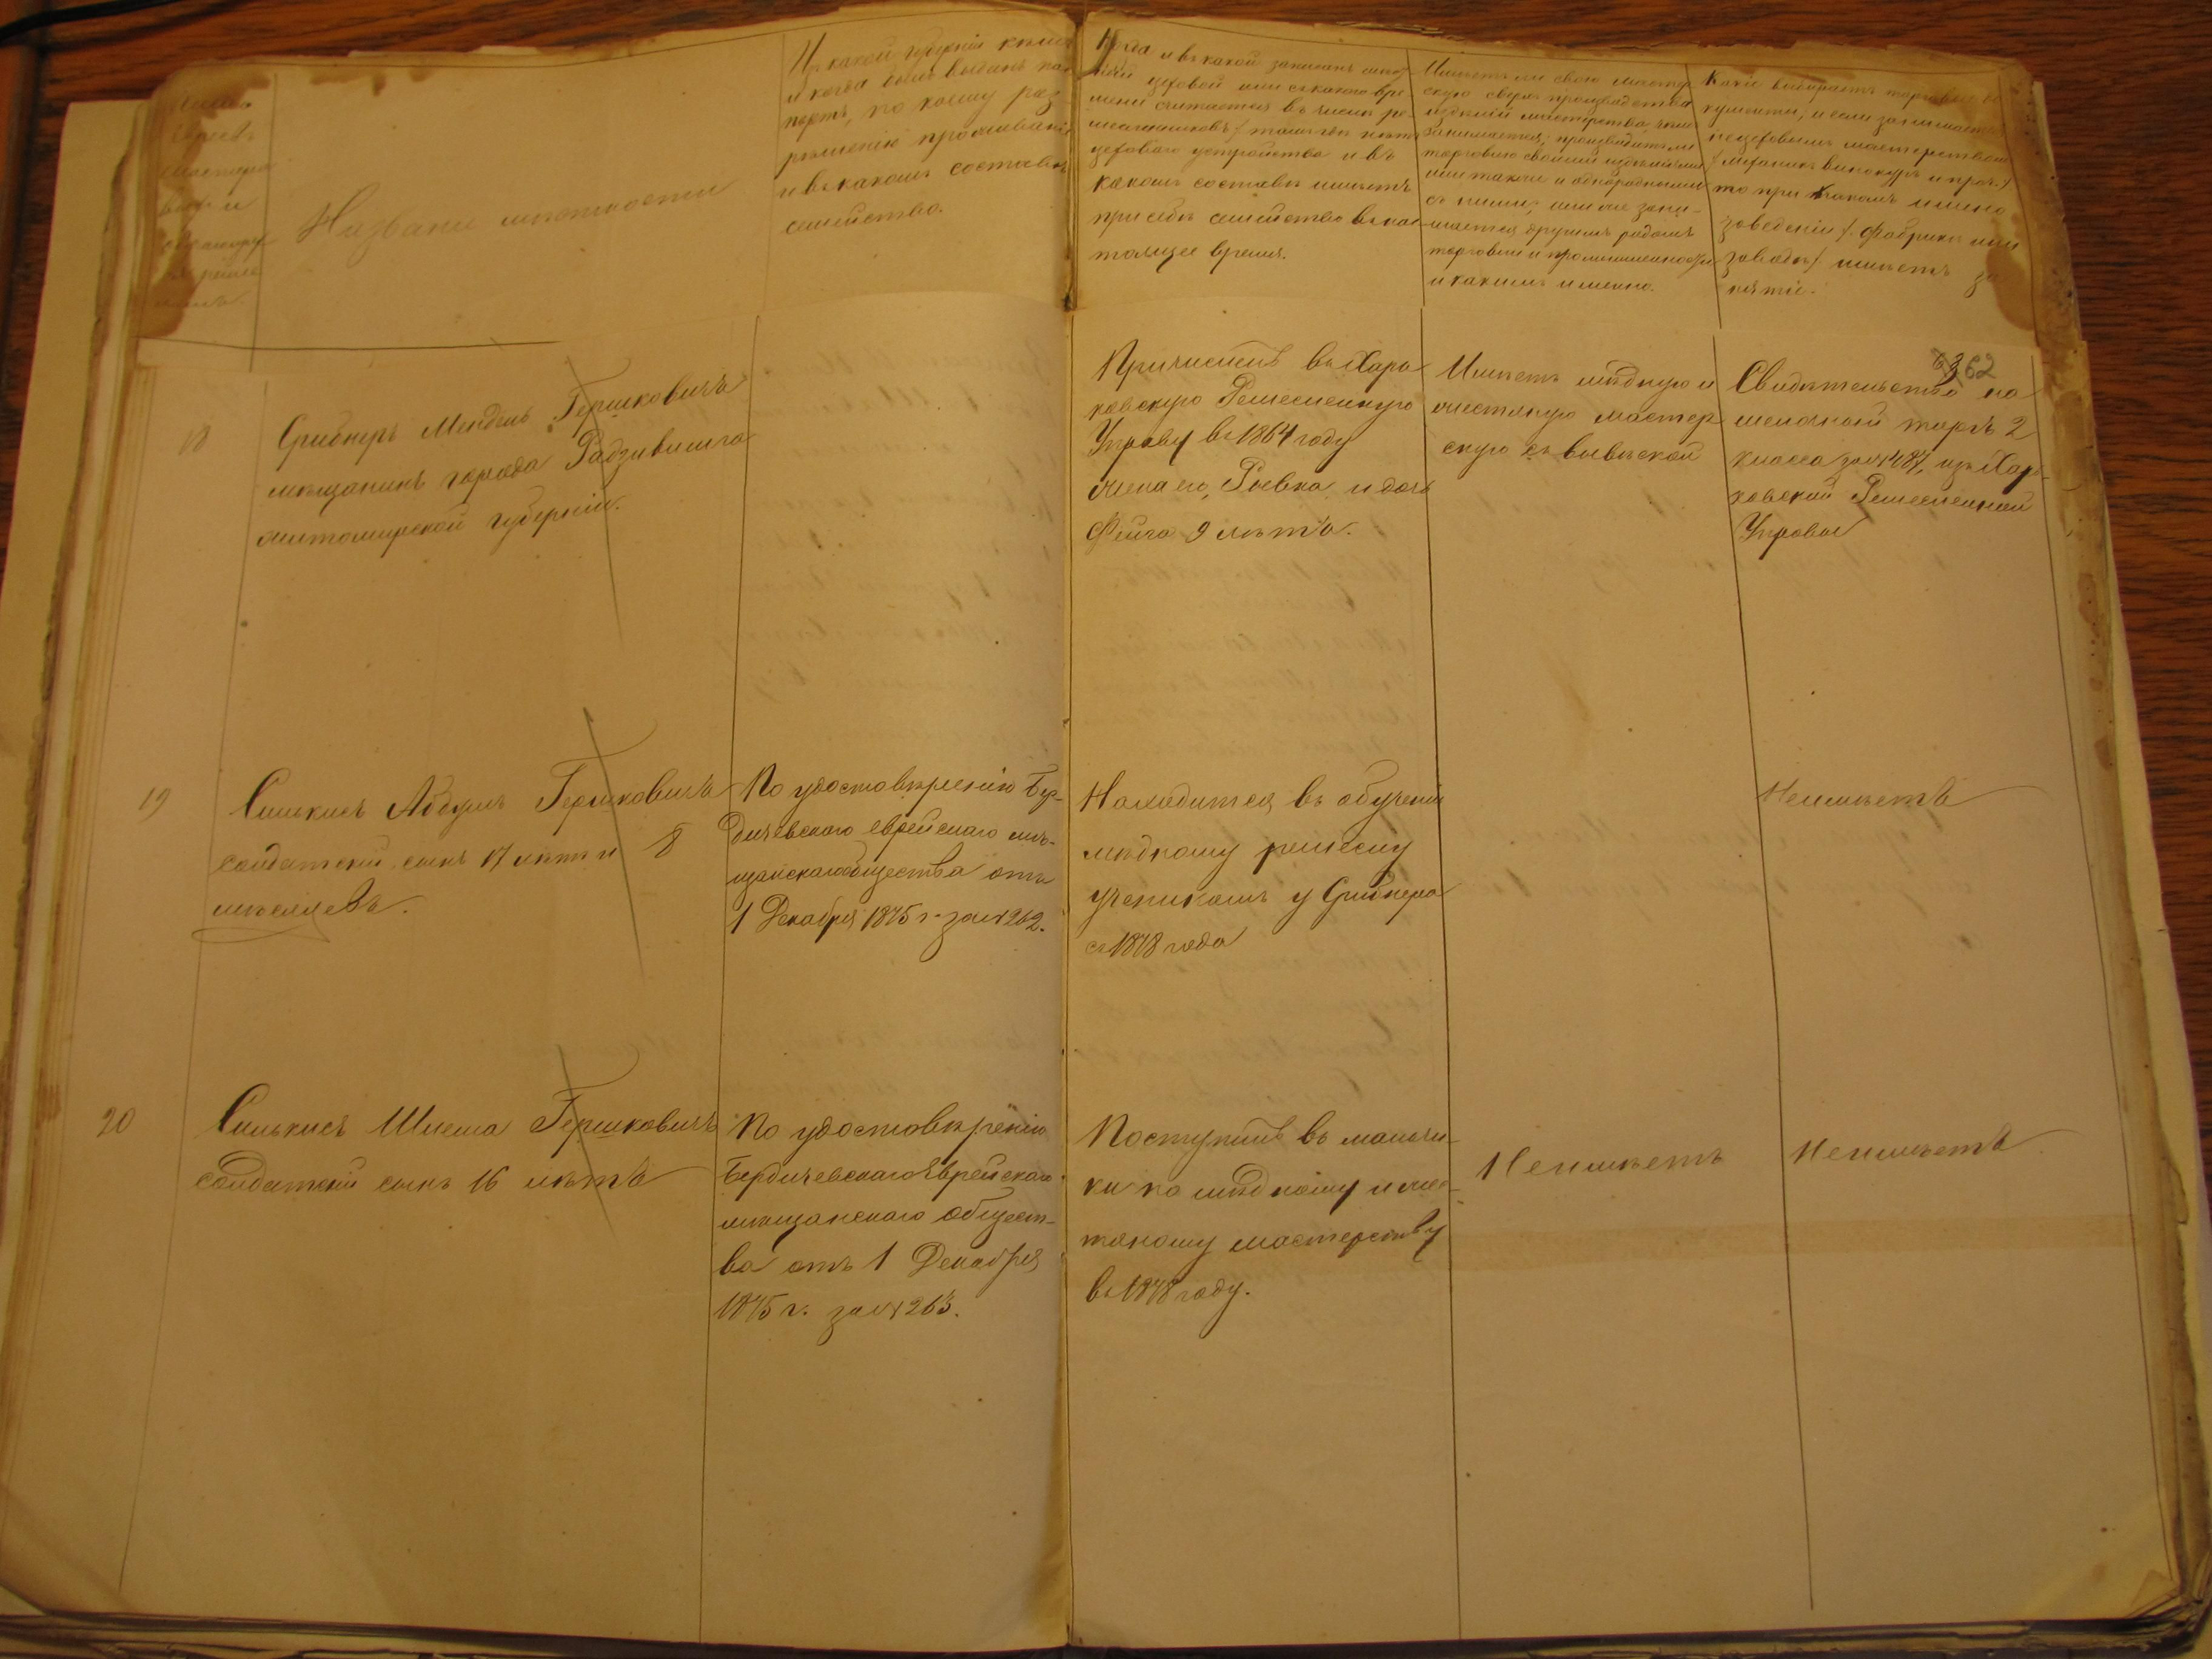 Названи мѣстности
Изъ какой губерніи
и когда былъ выданъ
портъ, по коему раз
рѣшенію проживаніе
и въ какомъ составѣ
семейство.
Когда и въ какой записанъ
цеховой или съ какого вре
мени считается въ числѣ ре
месленниковъ / тамъ гдѣ нѣтъ
цеховаго устройства и въ
какомъ составѣ имѣетъ
при себѣ семейство въ нас
тоящее время.
Имѣетъ ли свою мастер
скую сверхъ производства
издѣлій мастерства, чѣмъ
занимается; производитъ ли
торговлю своими издѣліями
или также и однородными
съ ними; или же зани-
мается другимъ родомъ
торговли и промышленности
и какимъ именно.
Какіе выбираетъ торговые до
кументы, и если занимается
нецеховымъ мастерствомъ
/ механикъ винокуръ и проч. /
то при какомъ имено
заведеніи /. фабрики или
заводы /. имѣетъ за
нятіе.
62
18
Срибнеръ Мендель Гершковичъ
мѣщанинъ города Радзивилла
житомирской губерніи.
Причисленъ въ Харь
ковскую Ремесленную
Управу въ 1864 году
жена его, Ривка, и дочь
Фейга 9 лѣтъ.
Имѣетъ мѣдную и
жестяную мастер
скую съ вывѣской
Свидѣтельство на
мелочной торгъ 2
класса за № 487, изъ Харь-
ковской Ремесленной
Управы
19
Силькисъ Абрумъ Гершковичъ
солдатскій сынъ 17 лѣтъ и 8
мѣсяцевъ.
По удостовѣренію Бер-
дичевскаго еврейскаго мѣ-
щанскаго общества отъ
1 Декабря 1875 г. за № 262.
Находится въ обученіи
мѣдному ремеслу
ученикомъ у Срибнера
съ 1878 года
Неимѣетъ
20
Силькисъ Шлема Гершковичъ
солдатскій сынъ 16 лѣтъ
По удостовѣренію
Бердичевскаго Еврейскаго
мѣщанскаго общест-
ва отъ 1 Декабря
1875 г. за № 263.
Поступилъ въ мальчи-
ки ко мѣдному и жес-
тяному мастерству
въ 1878 году.
Неимѣетъ
Неимѣетъ